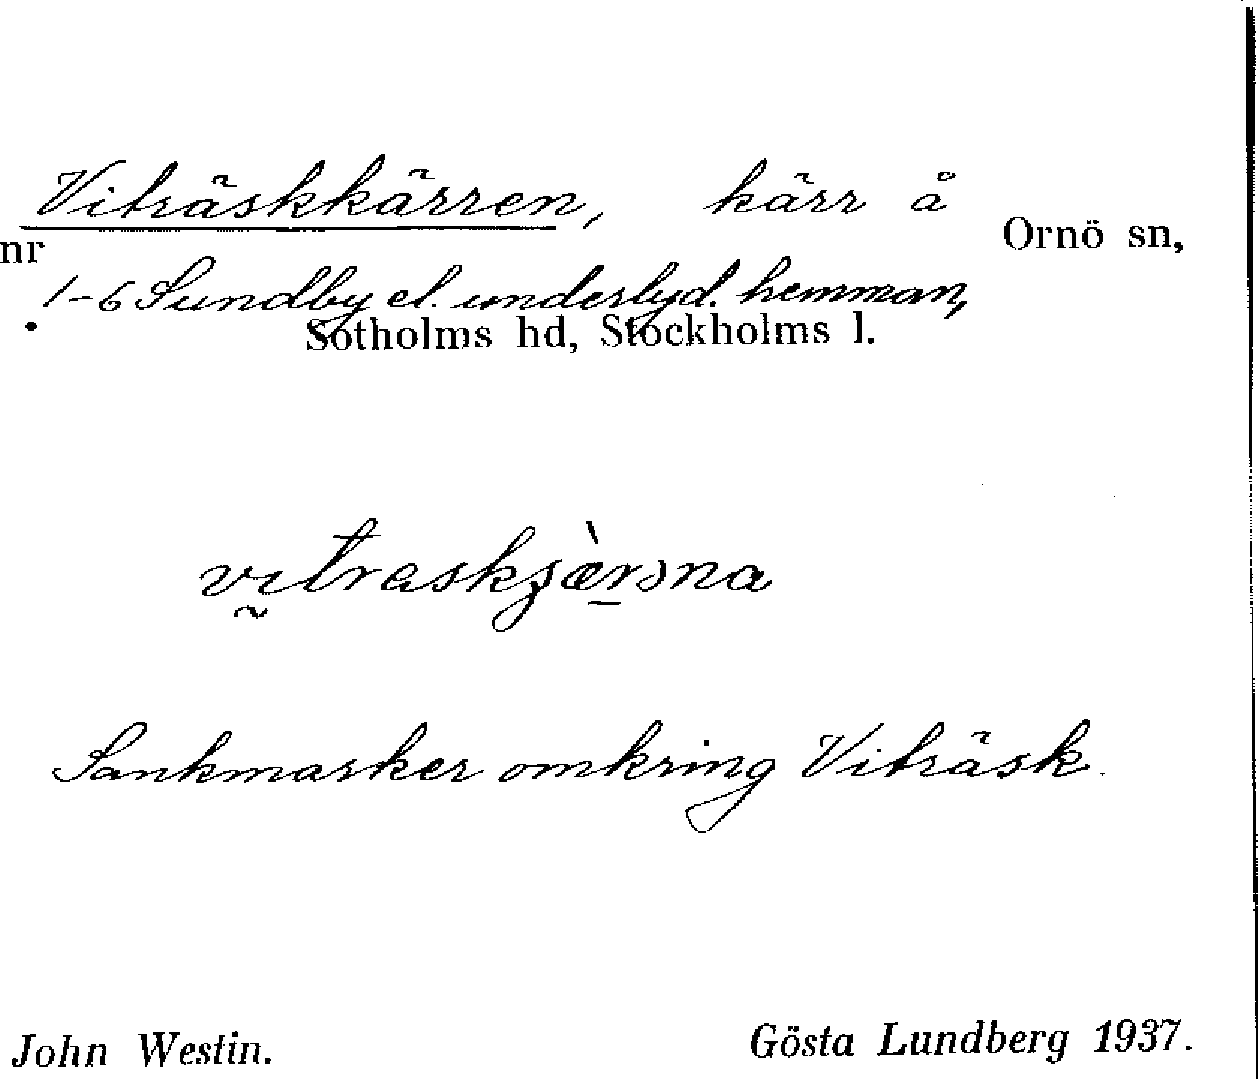 Viträskkärren, kärr å Ornö sn,
nr 1-6 Sundby el. underlyd. hemman,
Sotholms hd, Stockholms l.
Sankmarker omkring Viträsk.
John Westin. Gösta Lundberg 1937.